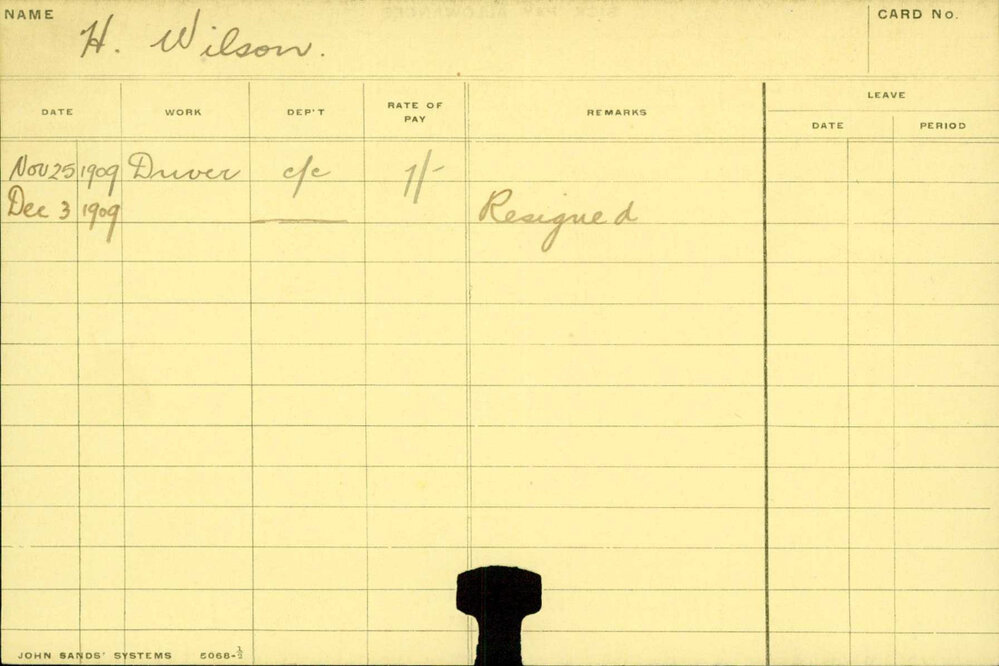 NAME H. Wilson. CARD No.
DATE WORK DEP'T RATE OF PAY REMARKS LEAVE
DATE PERIOD
Nov 25 1909 Driver c/c 1/-
Dec 3 1909 Resigned
JOHN SANDS' SYSTEMS 5068-½